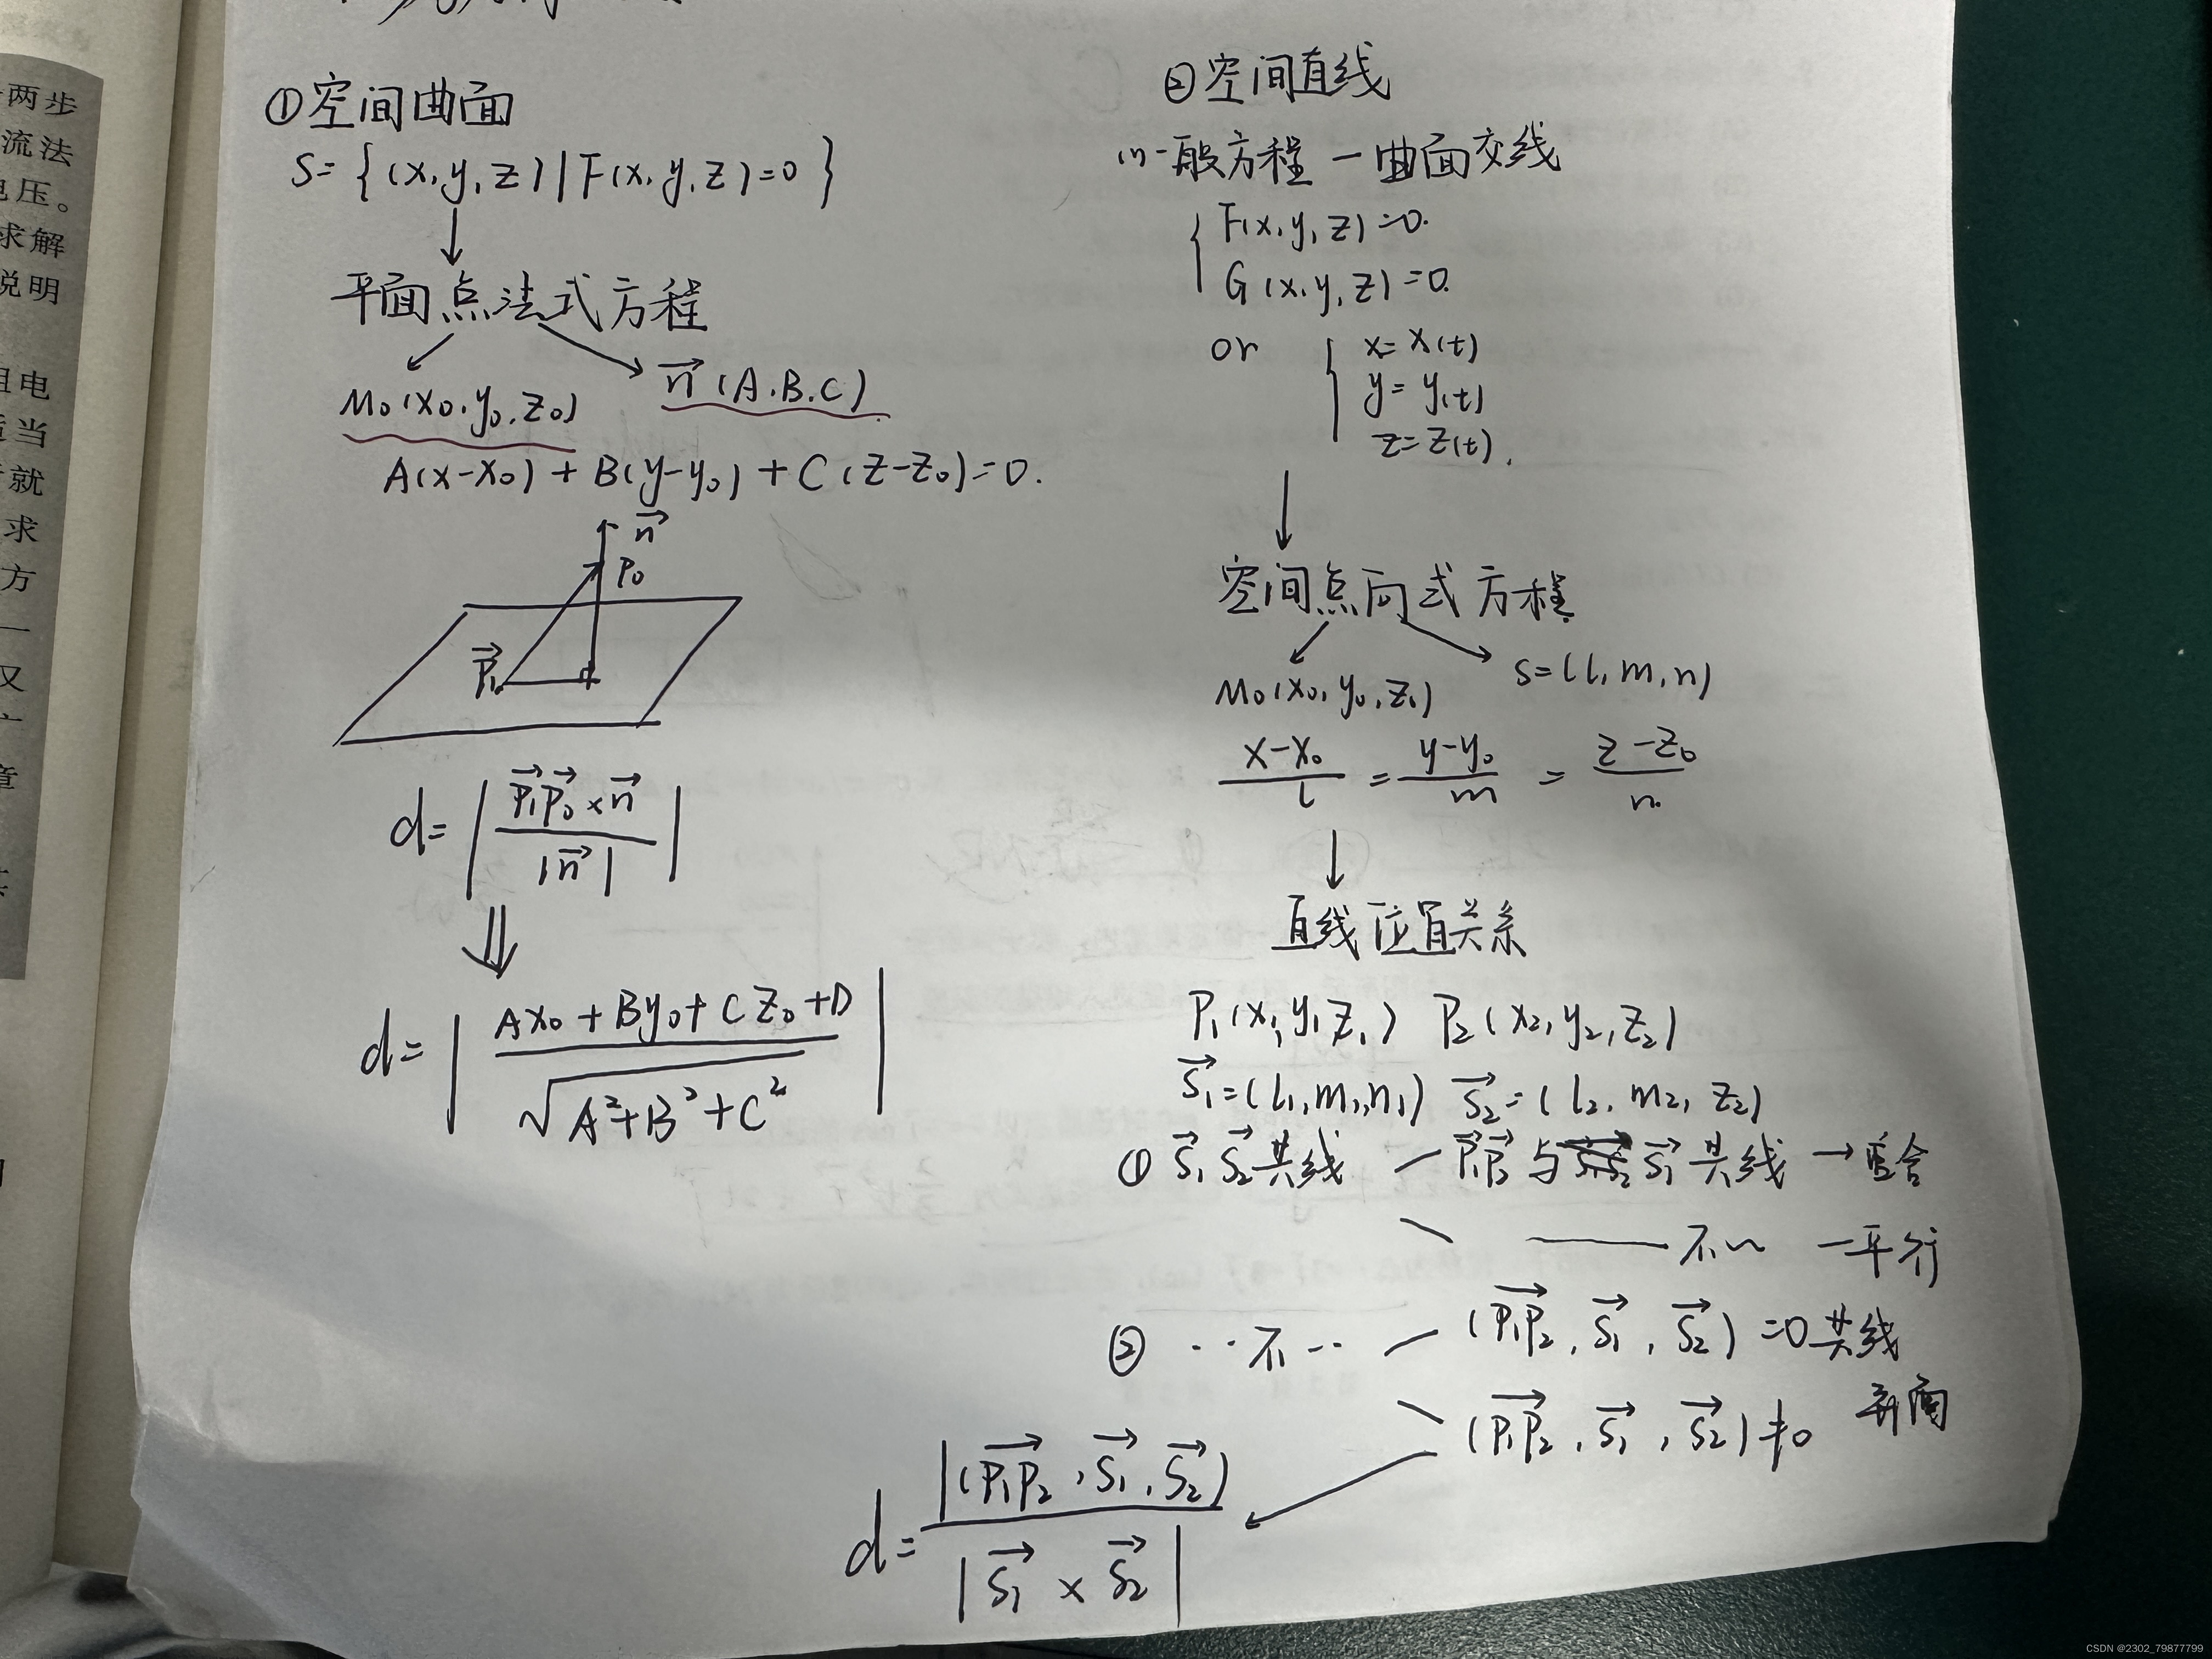 两步
流法
压。
求解
说明
电
当
就
求
方
一
又
章
①空间曲面
S={(x,y,z)|F(x,y,z)=0}
平面点法式方程
M₀(x₀,y₀,z₀)
n⃗(A.B.C)
A(x-x₀)+B(y-y₀)+C(z-z₀)=0.
n⃗
P₀
P⃗₁
d=|P₁⃗P₀⃗×n⃗/|n⃗||
⇓
d=|Ax₀+By₀+Cz₀+D/√A²+B²+C²|
②空间直线
(1)一般方程—曲面交线
{F(x,y,z)=0.
G(x,y,z)=0.
or {x=x(t)
y=y(t)
z=z(t).
空间点向式方程
M₀(x₀,y₀,z₁)
s=(l,m,n)
x-x₀/l=y-y₀/m=z-z₀/n.
直线位置关系
P₁(x₁,y₁z₁) P₂(x₂,y₂,z₂)
S₁⃗=(l₁,m₁,n₁) S₂⃗=(l₂,m₂,z₂)
① S₁⃗S₂⃗共线 — P₁⃗P₂⃗与S₁⃗共线→重合
——不~ —平行
② ··不-- (P₁P₂⃗,S₁⃗,S₂⃗)=0共线
(P₁P₂⃗,S₁⃗,S₂⃗)≠0
d=|(P₁P₂⃗,S₁⃗,S₂⃗)/|S₁⃗×S₂⃗|
CSDN @2302_79877799